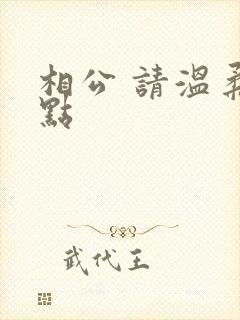 相公 請溫柔
點
武代王